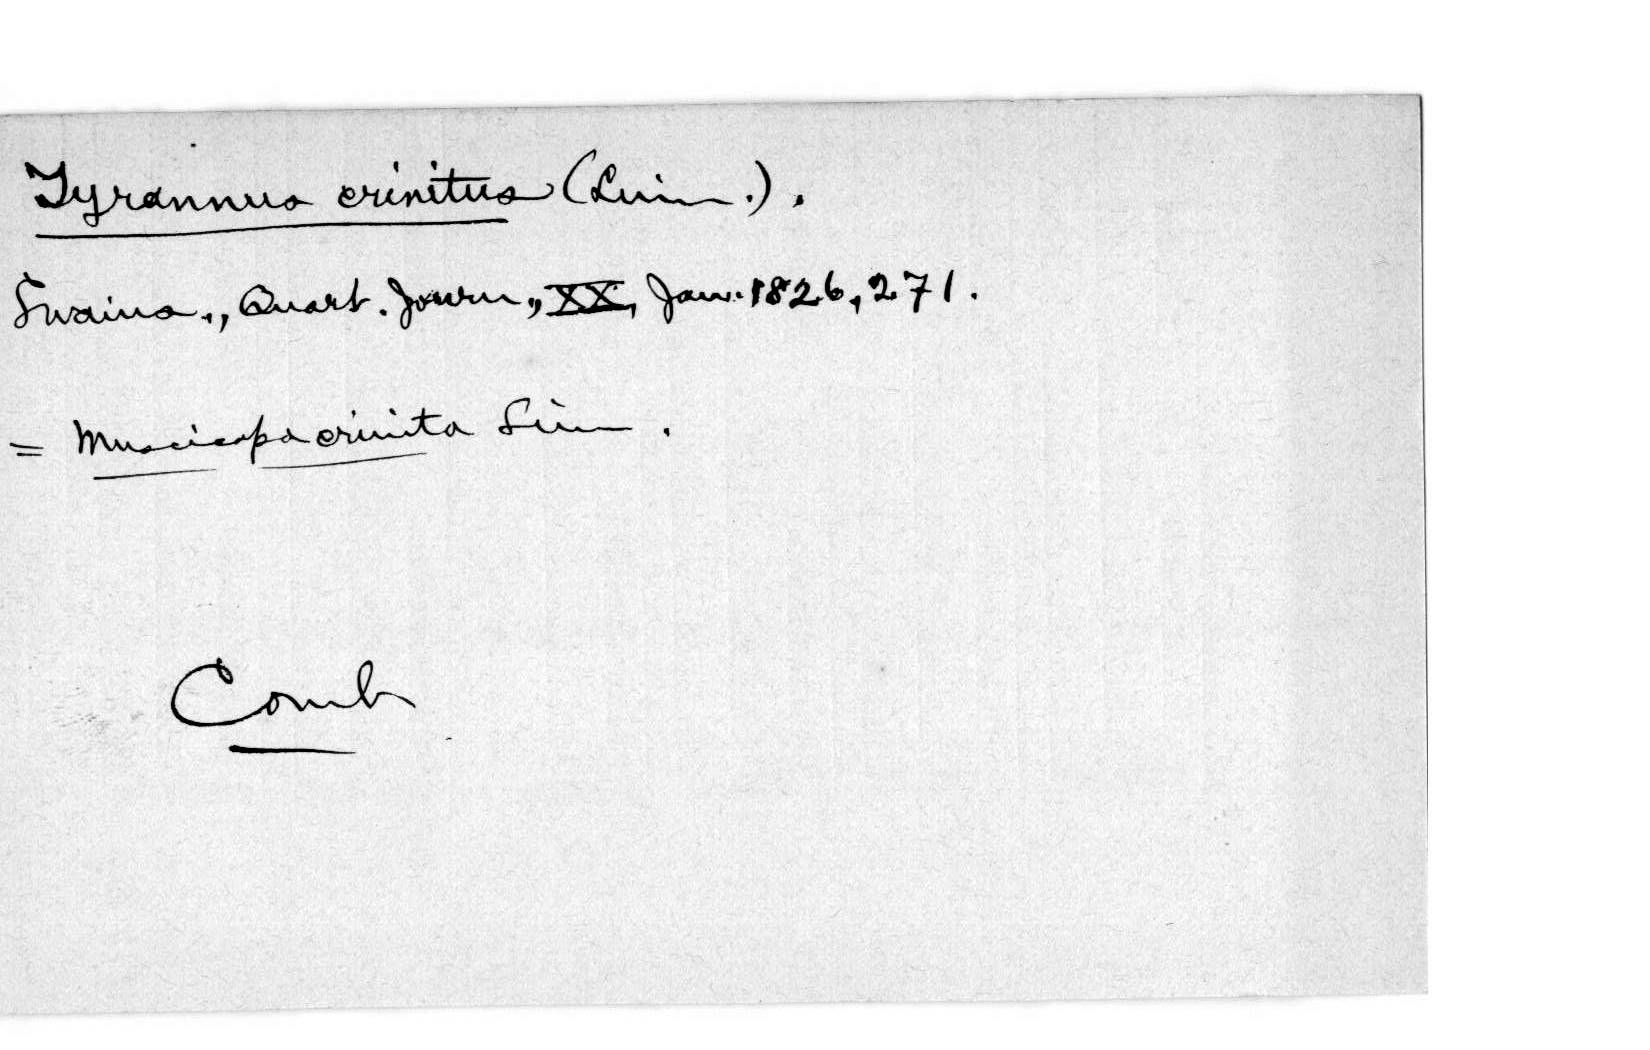 Tyrannus crinitus (Linn.).
Swains., Quart. Journ., XX, Jan. 1826, 271.
= Muscicapa crinita Linn.
Comb